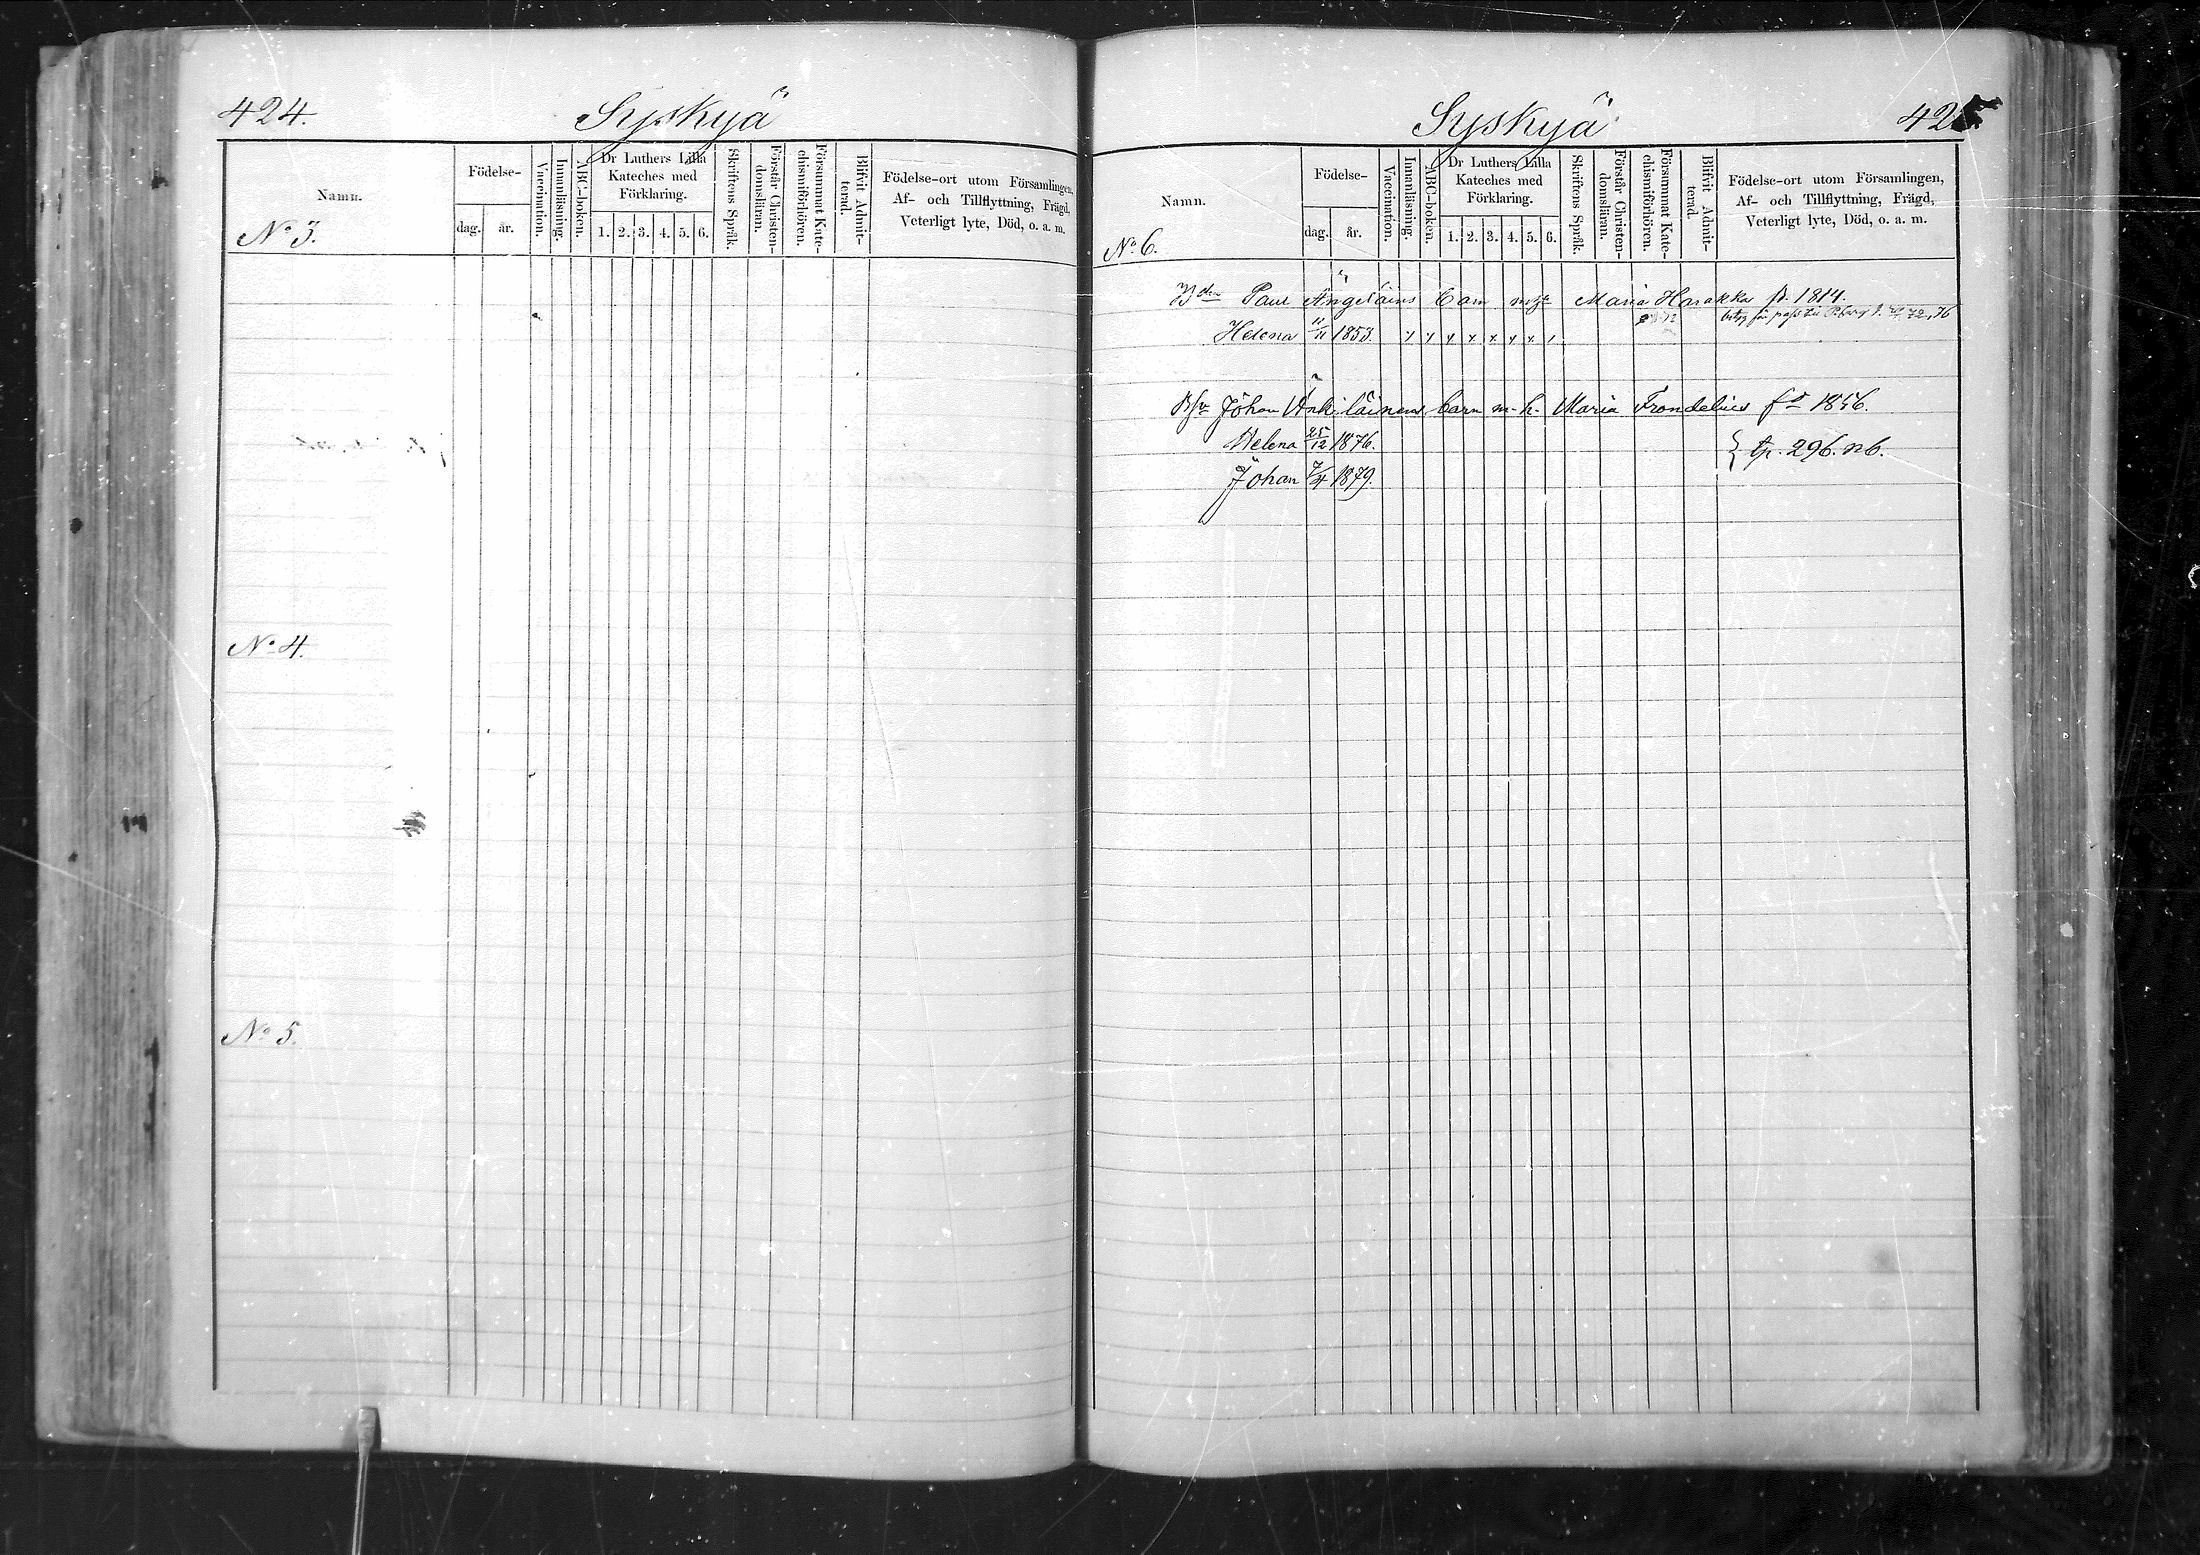 424.
Syskyä
Namn.
Födelse-
dag.
år.
Vaccination.
Innanläsning.
ABC-boken.
Dr Luthers Lilla
Kateches med
Förklaring.
1. 2. 3. 4. 5. 6.
Skriftens Språk.
Förstår Christen-
domsläran.
Försummat Kate-
chismiförhören.
Blifvit Admit-
terad.
Födelse-ort utom Församlingen,
Af- och Tillflyttning, Frägd,
Veterligt lyte, Död, o. a. m.
No 3.
No 4.
No 5.
Syskyä
425
Namn.
Födelse-
dag.
år.
Vaccination.
Innanläsning.
ABC-boken.
Dr Luthers Lilla
Kateches med
Förklaring.
1. 2. 3. 4. 5. 6.
Skriftens Språk.
Förstår Christen-
domsläran.
Försummat Kate-
chismiförhören.
Blifvit Admit-
terad.
Födelse-ort utom Församlingen,
Af- och Tillflyttning, Frägd,
Veterligt lyte, Död, o. a. m.
No 6.
Bden Paul Ängeläins barn Maria Harakka f. 1814.
Helena 11/11 1853.
Johan barn m. h. Maria Frondelius fd 1856.
Helena 25/12 1876.
Johan 7/4 1879.
tp. 296. n6.